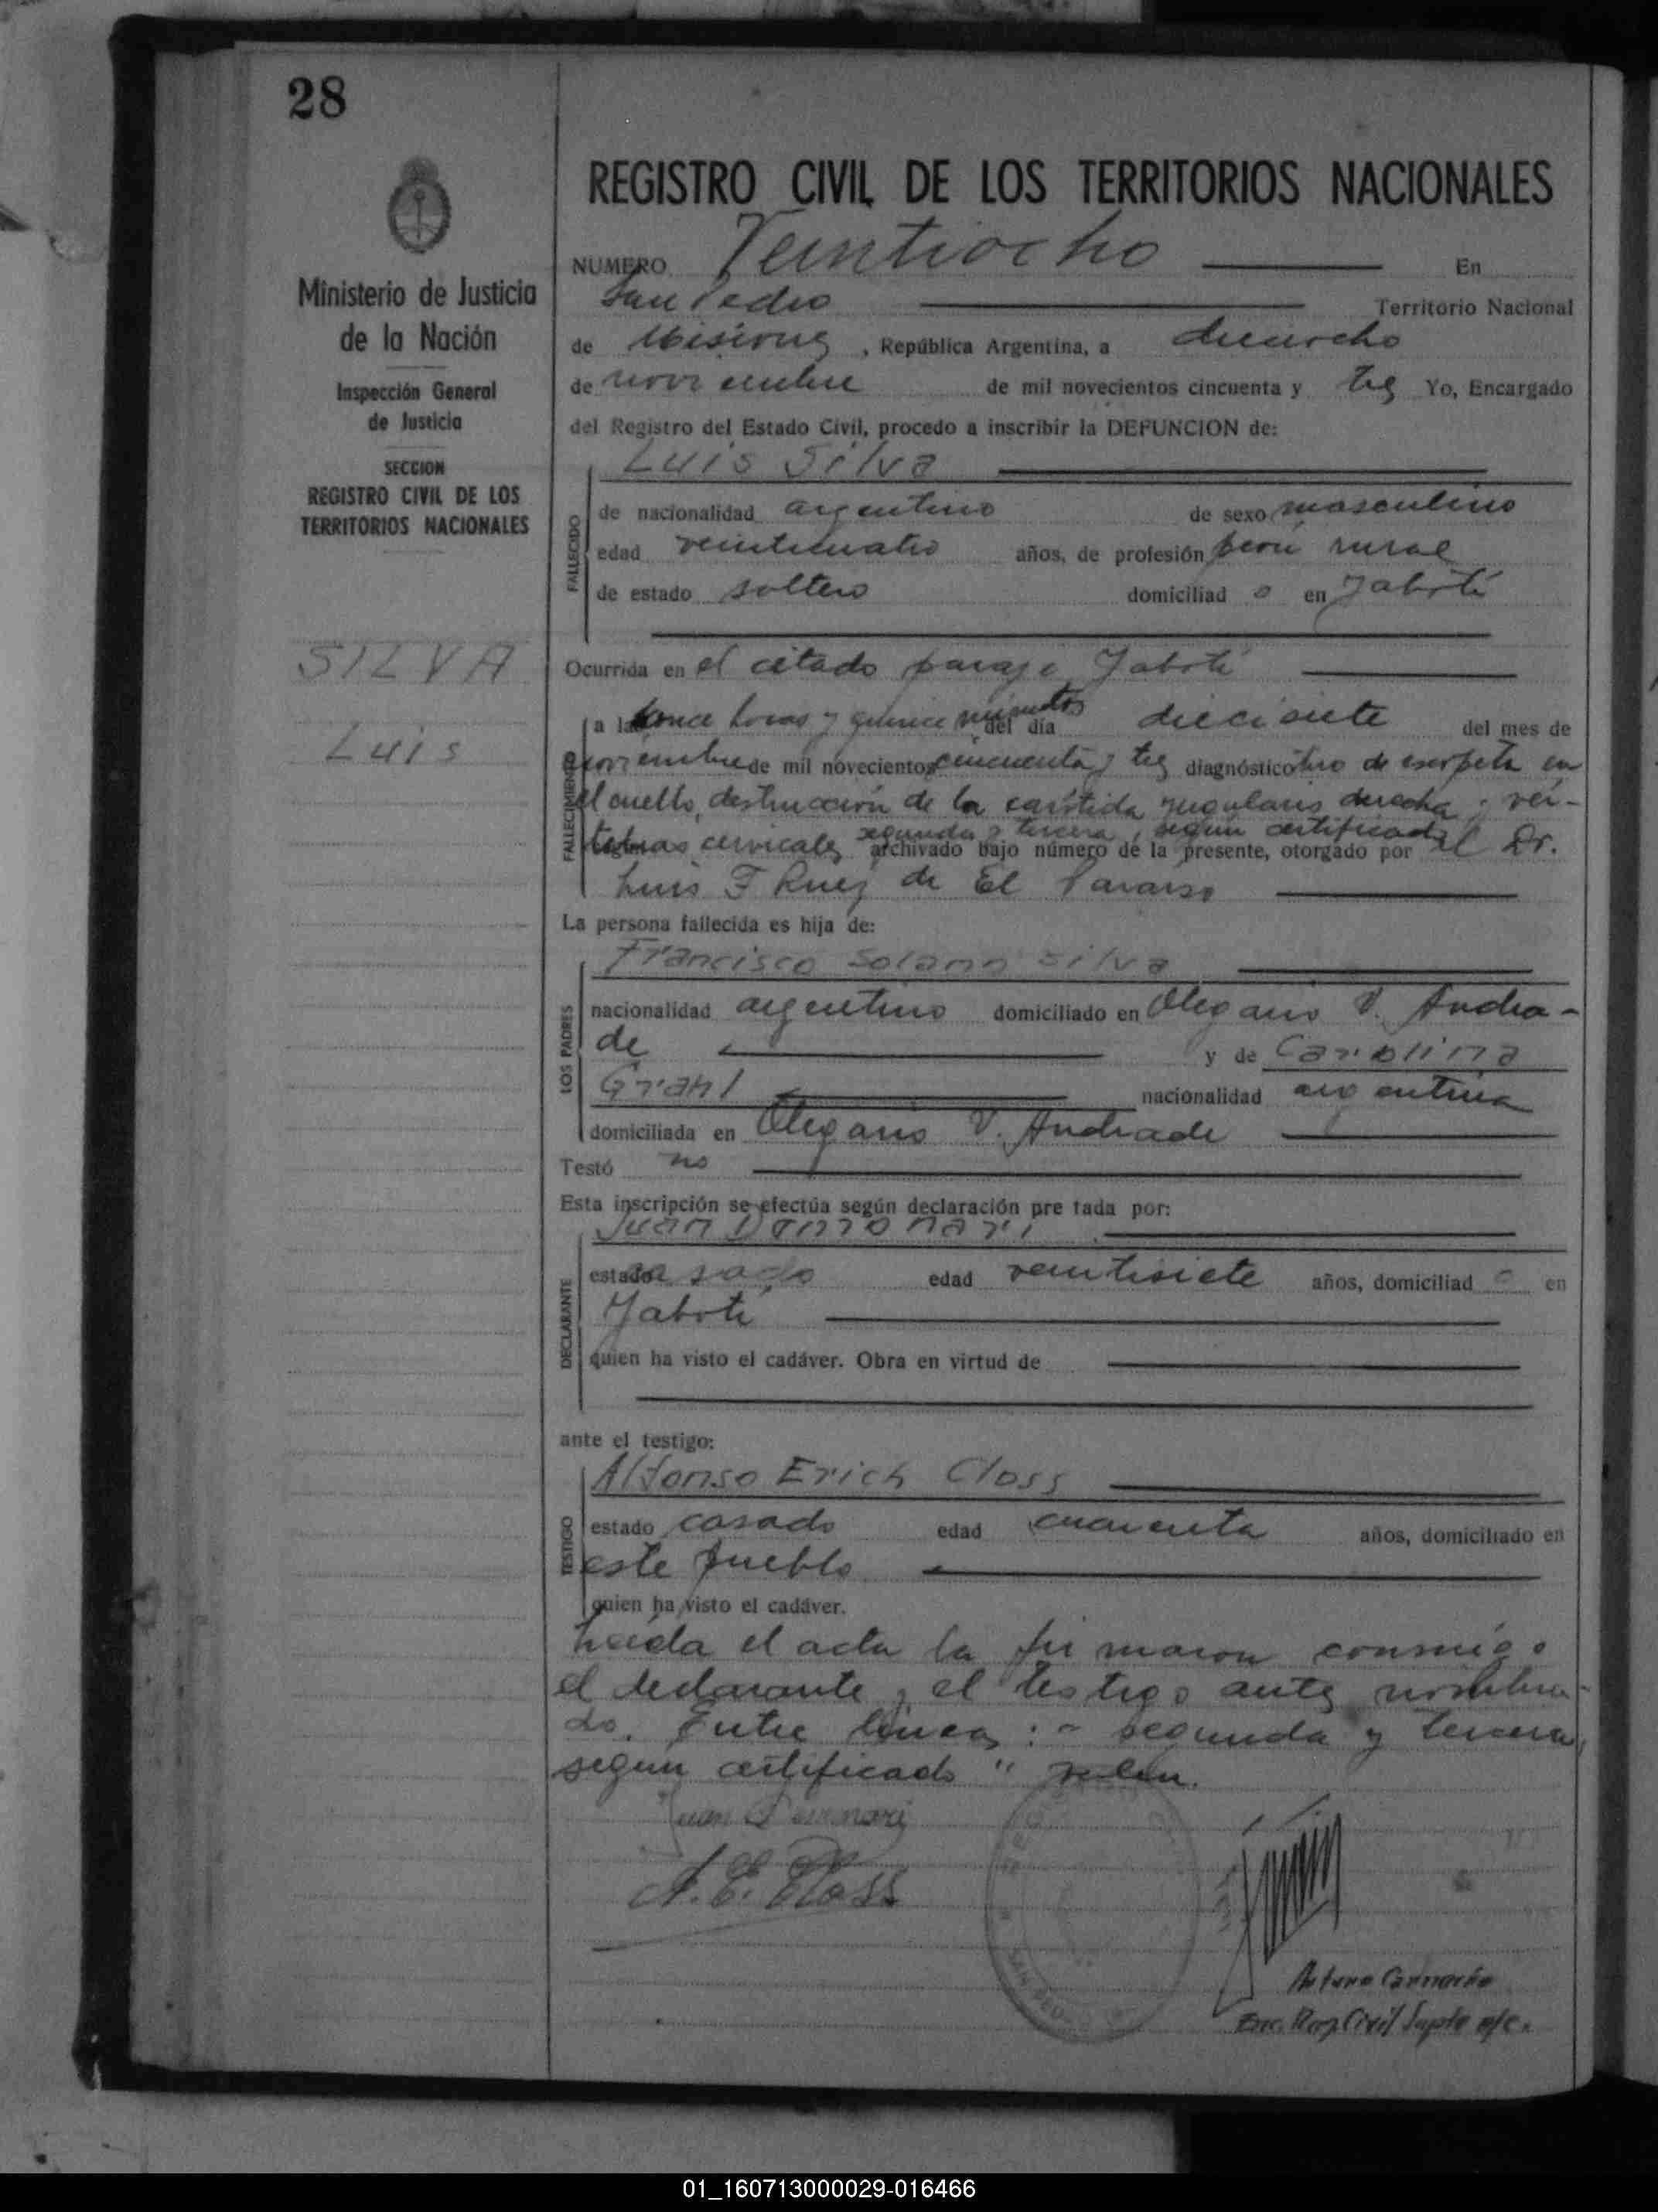 28
Ministerio de Justicia
de la Nación
Inspección General
de Justicia
SECCION
REGISTRO CIVIL DE LOS
TERRITORIOS NACIONALES
SILVA
Luis
REGISTRO CIVIL DE LOS TERRITORIOS NACIONALES
NUMERO Veintiocho En
San Pedro Territorio Nacional
de Misiones, República Argentina, a dieciocho
de noviembre de mil novecientos cincuenta y tres Yo, Encargado
del Registro del Estado Civil, procedo a inscribir la DEFUNCION de:
Luis Silva
FALLECIDO
de nacionalidad argentino de sexo masculino
edad veinticuatro años, de profesión peon rural
de estado soltero domiciliad o en Yabotí
Ocurrida en el citado paraje Yabotí
FALLECIMIENTO
a las once horas y quince minutos del día diecisiete del mes de
noviembre de mil novecientos cincuenta y tres diagnóstico tiro de escopeta en
el cuello, destrucción de la carótida yugularis derecha y vér-
tebras cervicales segunda y tercera, según certificado archivado bajo número de la presente, otorgado por el Dr.
Luis F Ruez de El Paraiso
La persona fallecida es hija de:
Francisco Solano Silva
LOS PADRES
nacionalidad argentino domiciliado en Olegario V. Andra-
de y de Carolina
Grahl nacionalidad argentina
domiciliada en Olegario V. Andrade
Testó no
Esta inscripción se efectúa según declaración pre tada por:
Juan
DECLARANTE
estado casado edad veintisiete años, domiciliad o en
Yabotí
quien ha visto el cadáver. Obra en virtud de
ante el testigo:
Alfonso Erich Closs
TESTIGO
estado casado edad cuarenta años, domiciliado en
este pueblo
quien ha visto el cadáver.
Leída el acta la firmaron conmigo
el declarante y el testigo antes nombra-
do. Entre lineas: "segunda y tercera,
segun certificado" valen.
Juan
A. E. Closs
SAN PEDRO
Arturo
Enc. Reg. Civil Supte a/c.
01_160713000029-016466